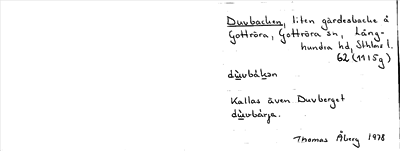 Duvbacken, liten gärdesbacke å
Gottröra, Gottröra sn, Lång-
hundra hd, Sthlms l.
62 (1155g)
dùvbákən
Kallas även Duvberget
dùvbárja.
Thomas Åberg 1978